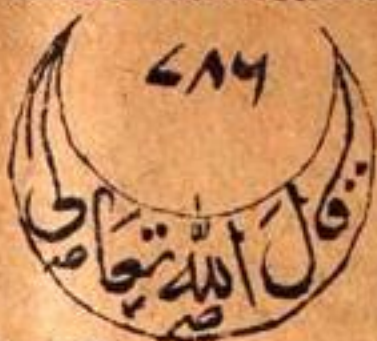 ۷۸۶
قَالَ اللّٰهُ تَعَالٰی